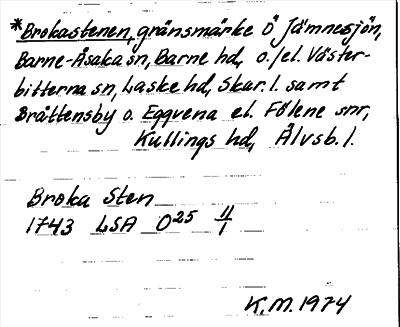 *Brokastenen, gränsmärke Ö Jämnesjön,
Barne-Åsaka sn, Barne hd, o./el. Väster-
bitterna sn, Laske hd, Skar. l. samt
Bråttensby o. Eggvena el. Fölene snr,
Kullings hd, Älvsb. l.
Broka Sten
1743 LSA O25 11/1
K.M. 1974